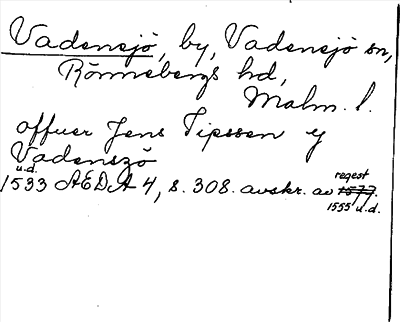 Vadensjö, by, Vadensjö sn,
Rönnebergs hd,
Malm. l.
offuer Jens Tipssen y
Vadenszö
u.d.
1533 AEDA 4, s. 308. avskr. av regest 1577.
1555 u.d.